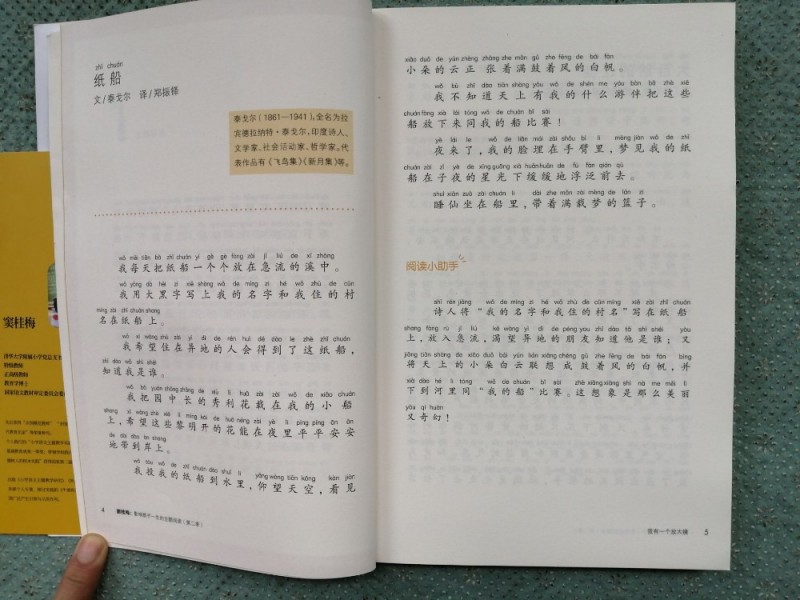 zhǐ chuán
纸船
文/泰戈尔 译/郑振铎
泰戈尔（1861—1941），全名为拉
宾德拉纳特·泰戈尔，印度诗人、
文学家、社会活动家、哲学家。代
表作品有《飞鸟集》《新月集》等。
wǒ měi tiān bǎ zhǐ chuán yí gè gè fàng zài jí liú de xī zhōng
我每天把纸船一个个放在急流的溪中。
wǒ yòng dà hēi zì xiě shàng wǒ de míng zì hé wǒ zhù de cūn
我用大黑字写上我的名字和我住的村
míng zài zhǐ chuán shàng
名在纸船上。
wǒ xī wàng zhù zài yì dì de rén huì dé dào le zhè zhǐ chuán
我希望住在异地的人会得到了这纸船，
zhī dào wǒ shì shéi
知道我是谁。
wǒ bǎ yuán zhōng zhǎng de xiù lì huā zài zài wǒ de xiǎo chuán
我把园中长的秀利花载在我的小船
shàng xī wàng zhè xiē lí míng kāi de huā néng zài yè lǐ píng píng ān ān
上，希望这些黎明开的花能在夜里平平安安
de dài dào àn shang
地带到岸上。
wǒ tóu wǒ de zhǐ chuán dào shuǐ lǐ yǎng wàng tiān kōng kàn jiàn
我投我的纸船到水里，仰望天空，看见
4 窦桂梅：影响孩子一生的主题阅读（第二季）
xiǎo duǒ de yún zhèng zhāng zhe mǎn gǔ zhe fēng de bái fān
小朵的云正张着满鼓着风的白帆。
wǒ bù zhī dào tiān shàng yǒu wǒ de shén me yóu bàn bǎ zhè xiē
我不知道天上有我的什么游伴把这些
chuán fàng xià lái tóng wǒ de chuán bǐ sài
船放下来同我的船比赛！
yè lái le wǒ de liǎn mái zài shǒu bì lǐ mèng jiàn wǒ de zhǐ
夜来了，我的脸埋在手臂里，梦见我的纸
chuán zài zǐ yè de xīng guāng xià huǎn huǎn de fú fàn qián qù
船在子夜的星光下缓缓地浮泛前去。
shuì xiān zuò zài chuán lǐ dài zhe mǎn zài mèng de lán zi
睡仙坐在船里，带着满载梦的篮子。
阅读小助手
shī rén jiāng wǒ de míng zì hé wǒ zhù de cūn míng xiě zài zhǐ chuán
诗人将“我的名字和我住的村名”写在纸船
shàng fàng rù jí liú mǎn wàng yì dì de péng you zhī dào tā shì shéi yòu
上，放入急流，满望异地的朋友知道他是谁；又
jiāng tiān shàng de xiǎo duǒ bái yún lián xiǎng chéng gǔ zhe fēng de bái fān bìng
将天上的小朵白云联想成鼓着风的白帆，并
xià dào hé lǐ tóng wǒ de chuán bǐ sài zhè xiǎng xiàng shì nà me měi lì
下到河里同“我的船”比赛。这想象是那么美丽
yòu qí huàn
又奇幻！
我有一个放大镜 5
窦桂梅
清华大学附属小学党总支书
特级教师
正高级教师
教育学博士
国家语文教材审定委员会委